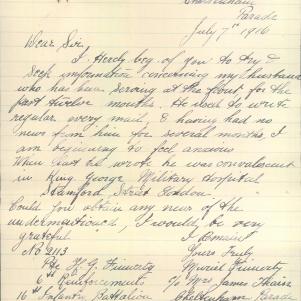 Cheltenham
Parade
July 7th 1916
Dear Sir
I. Herely beg of you to try &
seek information concerning my husband
who has been serving at the front for the
past twelve months. He used to write
regular every mail, & having had no
news from him for several months, I
am beginning to feel anxious
When last he wrote he was convalescent
in King George Military Hospital
Stamford Street London
Could you obtain any news of the
undermentioned, I would be very
grateful
I Remain
No 2113
Yours Truly
Pte H G Finnerty
Muriel Finnerty
Reinforcements
C/o Mrs James
16th Infantry Battalion
Cheltenham Parade